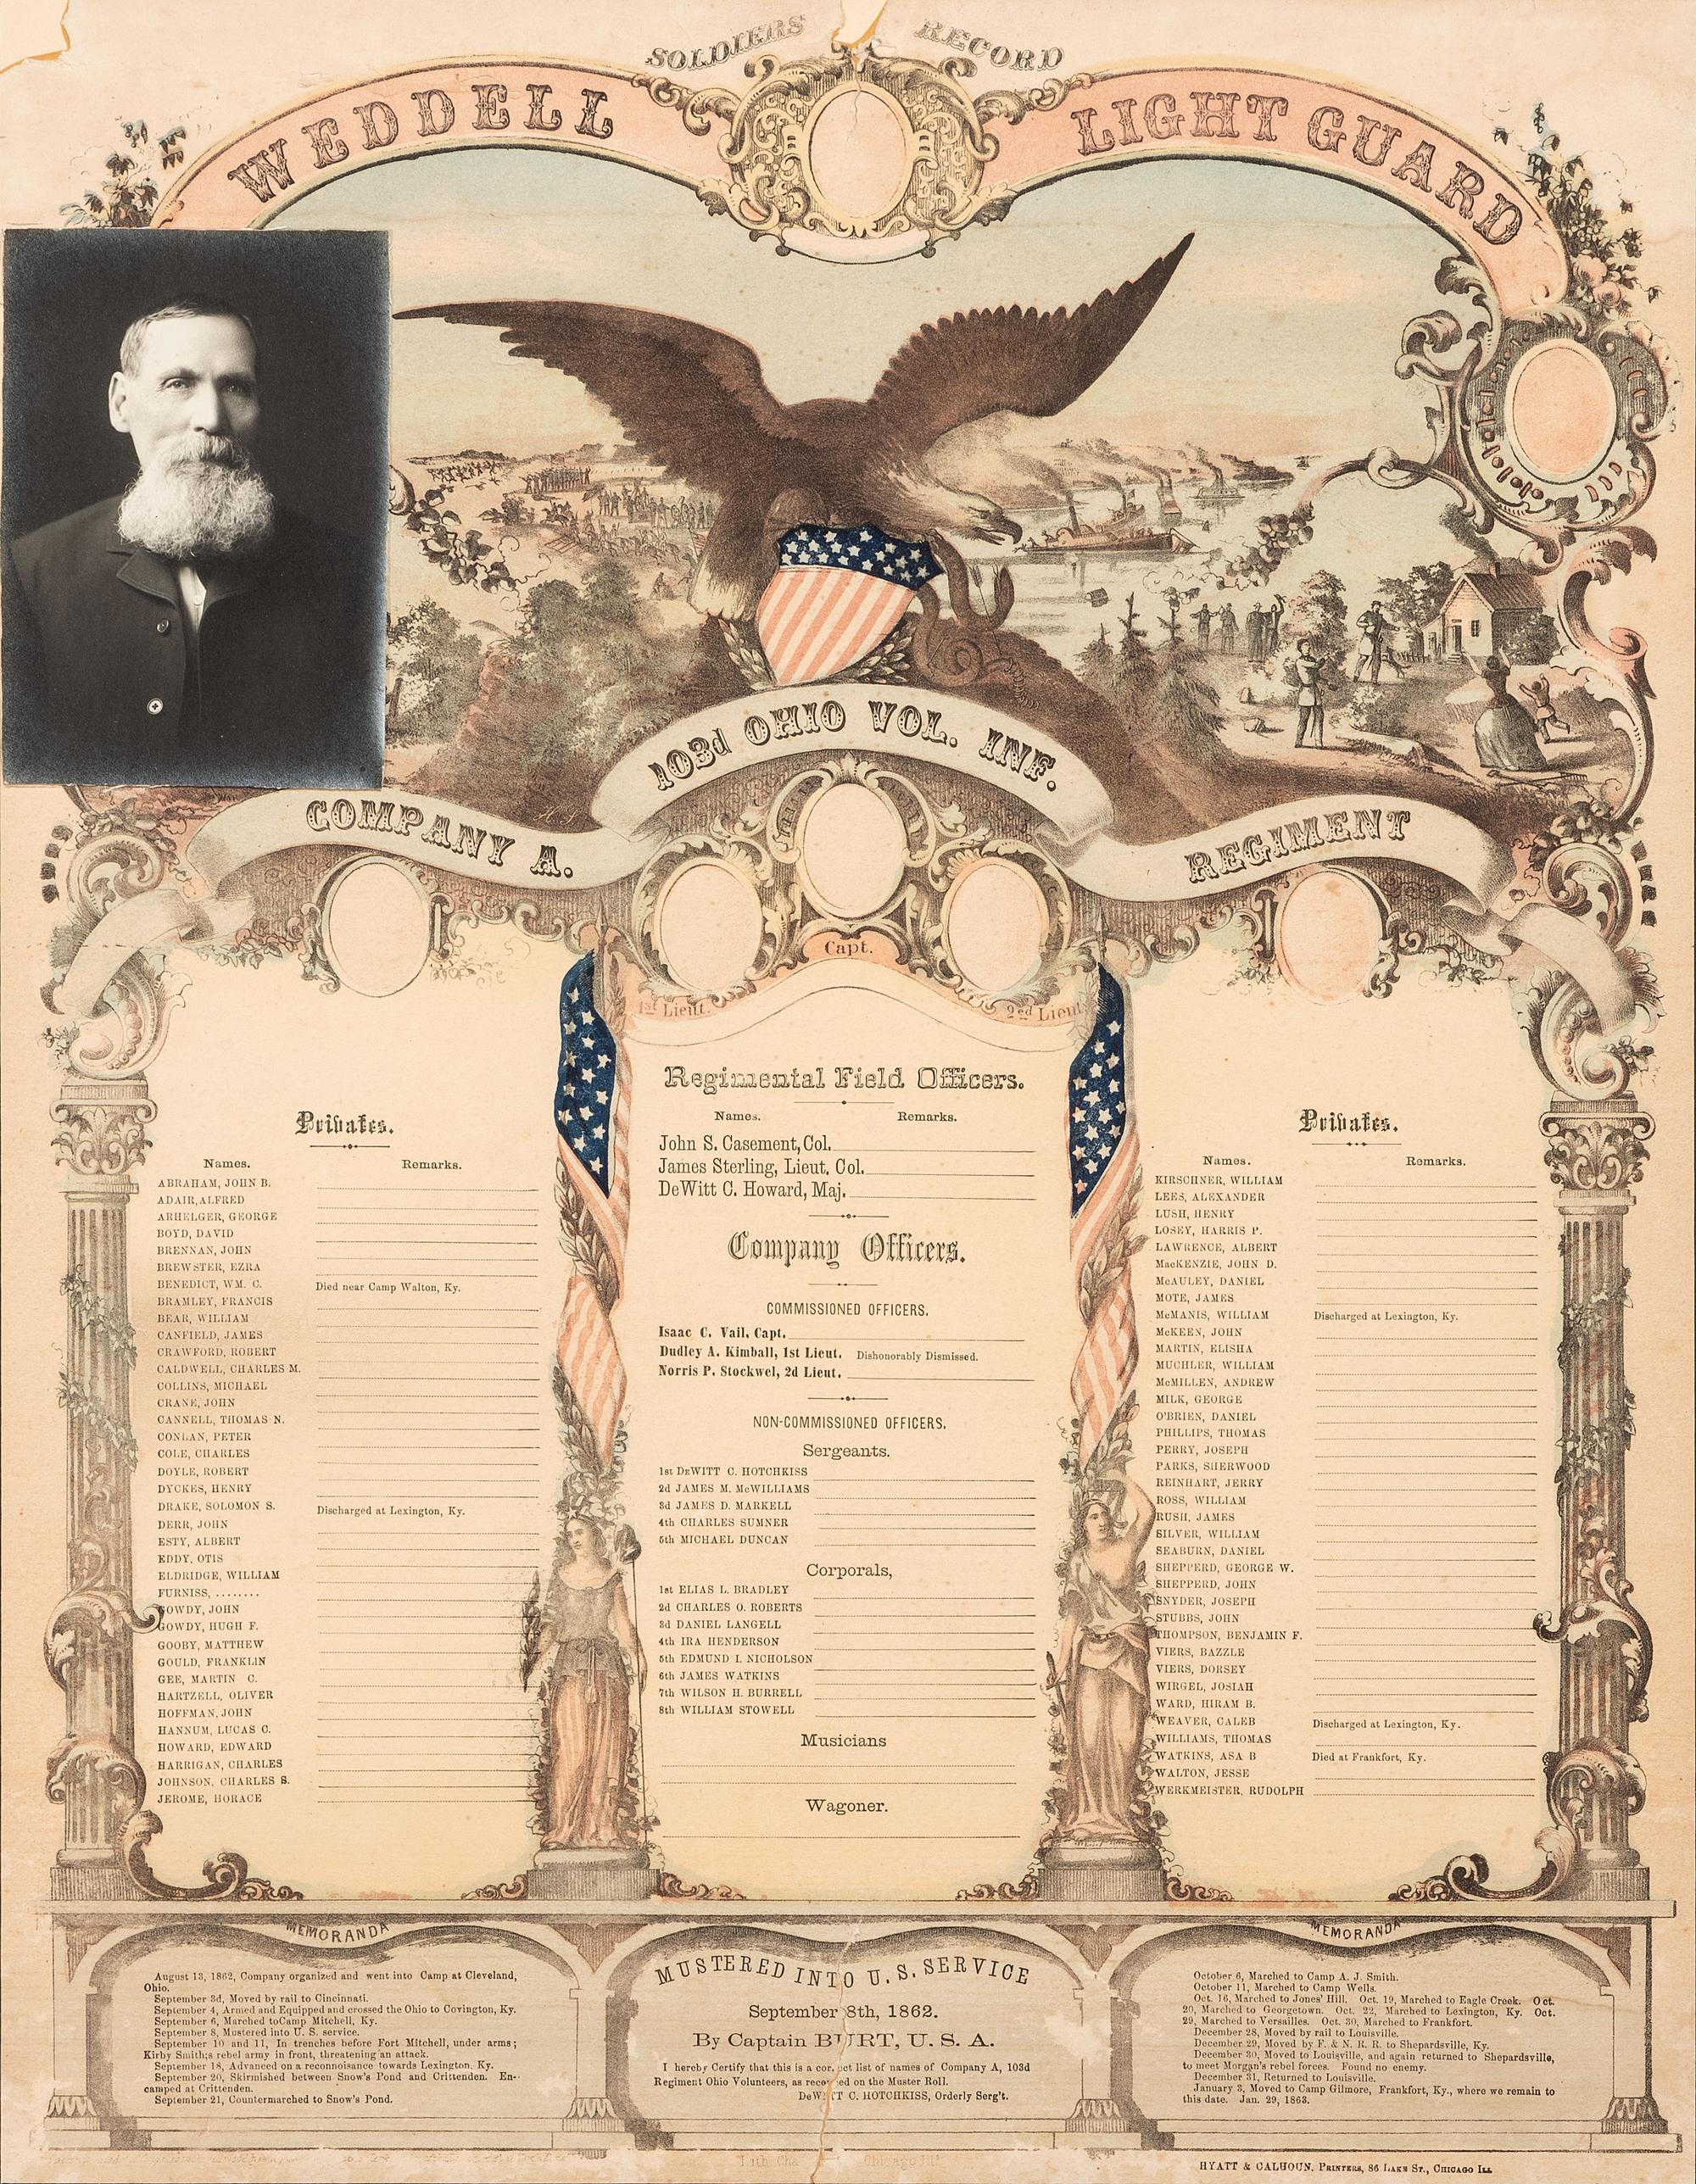 SOLDIERS RECORD
WEDDELL LIGHT GUARD
103d OHIO VOL. INF.
COMPANY A. REGIMENT
Capt.
1st Lieut. 2ed Lieut.
Privates.
Names. Remarks.
ABRAHAM, JOHN B.
ADAIR, ALFRED
ARHELGER, GEORGE
BOYD, DAVID
BRENNAN, JOHN
BREWSTER, EZRA
BENEDICT, WM. C. Died near Camp Walton, Ky.
BRAMLEY, FRANCIS
BEAR, WILLIAM
CANFIELD, JAMES
CRAWFORD, ROBERT
CALDWELL, CHARLES M.
COLLINS, MICHAEL
CRANE, JOHN
CANNELL, THOMAS N.
CONLAN, PETER
COLE, CHARLES
DOYLE, ROBERT
DYCKES, HENRY
DRAKE, SOLOMON S. Discharged at Lexington, Ky.
DERR, JOHN
ESTY, ALBERT
EDDY, OTIS
ELDRIDGE, WILLIAM
FURNISS, ........
GOWDY, JOHN
GOWDY, HUGH F.
GOOBY, MATTHEW
GOULD, FRANKLIN
GEE, MARTIN C.
HARTZELL, OLIVER
HOFFMAN, JOHN
HANNUM, LUCAS C.
HOWARD, EDWARD
HARRIGAN, CHARLES
JOHNSON, CHARLES S.
JEROME, HORACE
Regimental Field Officers.
Names. Remarks.
John S. Casement, Col.
James Sterling, Lieut. Col.
DeWitt C. Howard, Maj.
Company Officers.
COMMISSIONED OFFICERS.
Isaac C. Vail, Capt.
Dudley A. Kimball, 1st Lieut. Dishonorably Dismissed.
Norris P. Stockwel, 2d Lieut.
NON-COMMISSIONED OFFICERS.
Sergeants.
1st DeWITT C. HOTCHKISS
2d JAMES M. McWILLIAMS
3d JAMES D. MARKELL
4th CHARLES SUMNER
5th MICHAEL DUNCAN
Corporals,
1st ELIAS L. BRADLEY
2d CHARLES O. ROBERTS
3d DANIEL LANGELL
4th IRA HENDERSON
5th EDMUND I. NICHOLSON
6th JAMES WATKINS
7th WILSON H. BURRELL
8th WILLIAM STOWELL
Musicians
Wagoner.
Privates.
Names. Remarks.
KIRSCHNER, WILLIAM
LEES, ALEXANDER
LUSH, HENRY
LOSEY, HARRIS P.
LAWRENCE, ALBERT
MacKENZIE, JOHN D.
McAULEY, DANIEL
MOTE, JAMES
McMANIS, WILLIAM Discharged at Lexington, Ky.
McKEEN, JOHN
MARTIN, ELISHA
MUCHLER, WILLIAM
McMILLEN, ANDREW
MILK, GEORGE
O'BRIEN, DANIEL
PHILLIPS, THOMAS
PERRY, JOSEPH
PARKS, SHERWOOD
REINHART, JERRY
ROSS, WILLIAM
RUSH, JAMES
SILVER, WILLIAM
SEABURN, DANIEL
SHEPPERD, GEORGE W.
SHEPPERD, JOHN
SNYDER, JOSEPH
STUBBS, JOHN
THOMPSON, BENJAMIN F.
VIERS, BAZZLE
VIERS, DORSEY
WIRGEL, JOSIAH
WARD, HIRAM B.
WEAVER, CALEB Discharged at Lexington, Ky.
WILLIAMS, THOMAS
WATKINS, ASA B Died at Frankfort, Ky.
WALTON, JESSE
WERKMEISTER, RUDOLPH
MEMORANDA
August 13, 1862, Company organized and went into Camp at Cleveland,
Ohio.
September 3d, Moved by rail to Cincinnati.
September 4, Armed and Equipped and crossed the Ohio to Covington, Ky.
September 6, Marched to Camp Mitchell, Ky.
September 8, Mustered into U. S. service.
September 10 and 11, In trenches before Fort Mitchell, under arms;
Kirby Smith;s rebel army in front, threatening an attack.
September 18, Advanced on a reconnoisance towards Lexington, Ky.
September 20, Skirmished between Snow's Pond and Crittenden. En-
camped at Crittenden.
September 21, Countermarched to Snow's Pond.
MUSTERED INTO U. S. SERVICE
September 8th, 1862.
By Captain BURT, U. S. A.
I hereby Certify that this is a correct list of names of Company A, 103d
Regiment Ohio Volunteers, as recorded on the Muster Roll.
DeWITT C. HOTCHKISS, Orderly Serg't.
MEMORANDA
October 6, Marched to Camp A. J. Smith.
October 11, Marched to Camp Wells.
Oct. 16, Marched to Jones' Hill. Oct. 19, Marched to Eagle Creek. Oct.
20, Marched to Georgetown. Oct. 22, Marched to Lexington, Ky. Oct.
29, Marched to Versailles. Oct. 30, Marched to Frankfort.
December 28, Moved by rail to Louisville.
December 29, Moved by F. & N. R. R. to Shepardsville, Ky.
December 30, Moved to Louisville, and again returned to Shepardsville,
to meet Morgan's rebel forces. Found no enemy.
December 31, Returned to Louisville.
January 3, Moved to Camp Gilmore, Frankfort, Ky., where we remain to
this date. Jan. 29, 1863.
Lith. Cha Chicago Ill.
HYATT & CALHOUN, PRINTERS, 86 LAKE ST., CHICAGO ILL